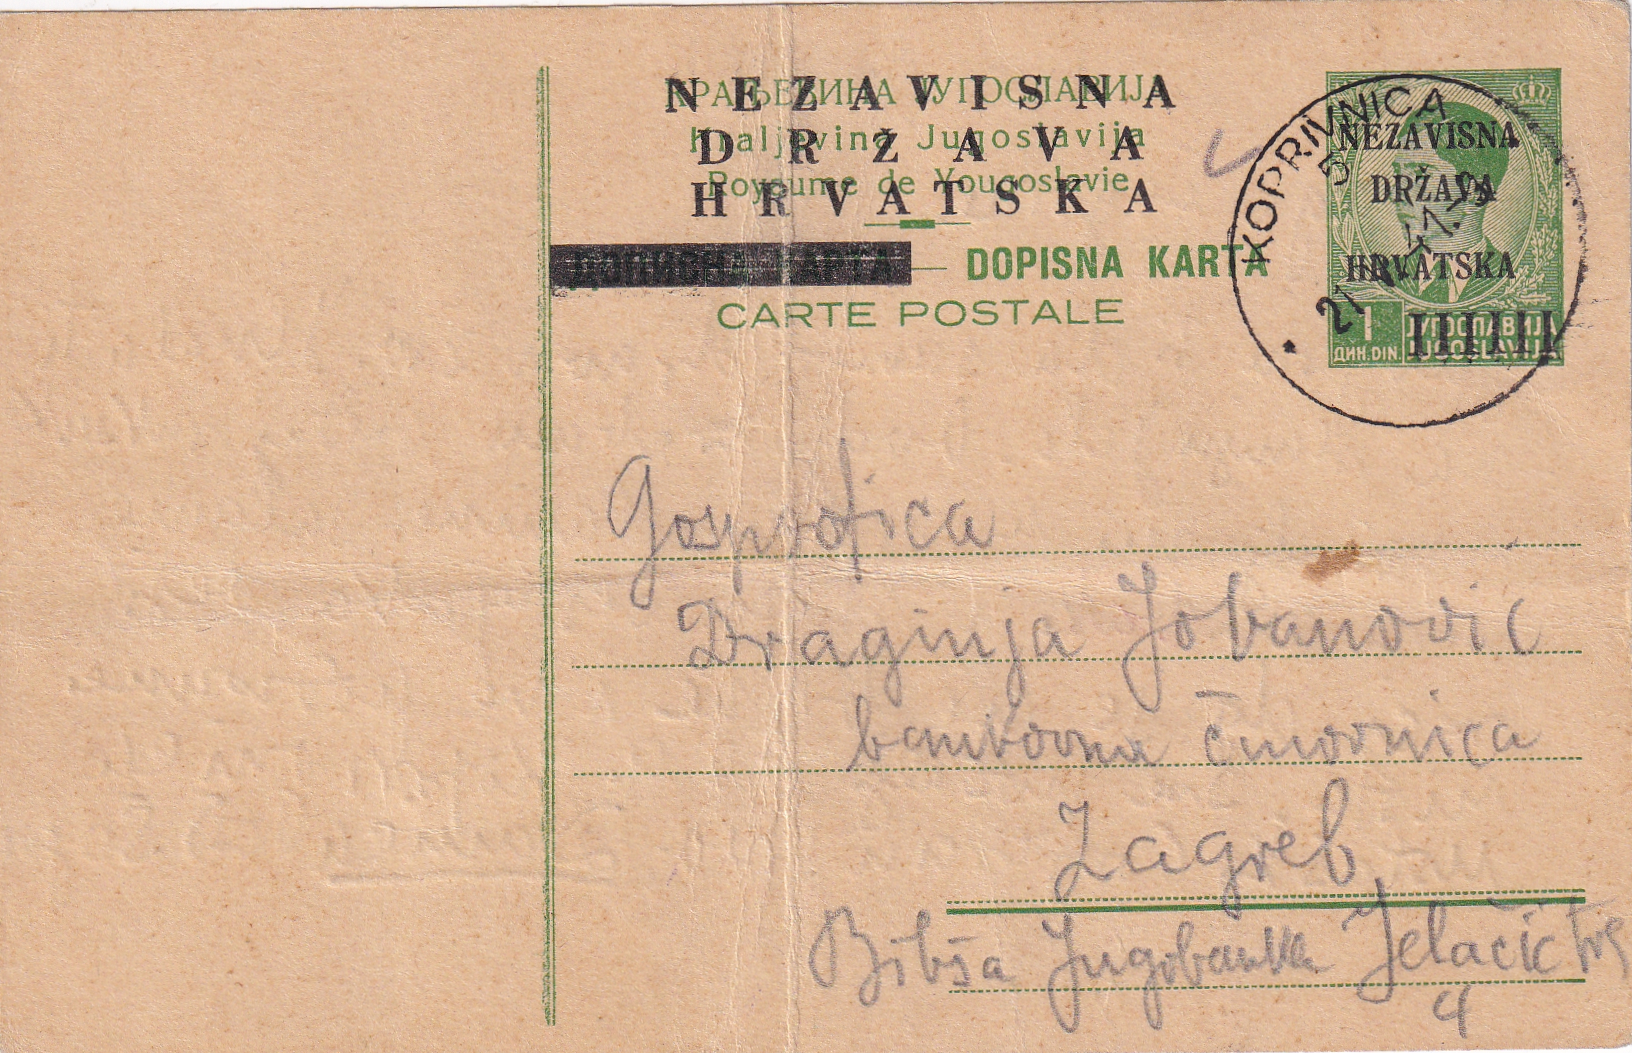 КРАЉЕВИНА ЈУГОСЛАВИЈА
NEZAVISNA
Kraljevina Jugoslavija
DRŽAVA
Royaume de Yougoslavie
HRVATSKA
ДОПИСНА КАРТА — DOPISNA KARTA
CARTE POSTALE
KOPRIVNICA
NEZAVISNA
DRŽAVA
HRVATSKA
1
ДИН. DIN.
ЈУГОСЛАВИЈА
JUGOSLAVIJA
Gospodjica
Draginja Jovanović
bankovna činovnica
Zagreb
Bivša Jugobanka Jelačić trg
4